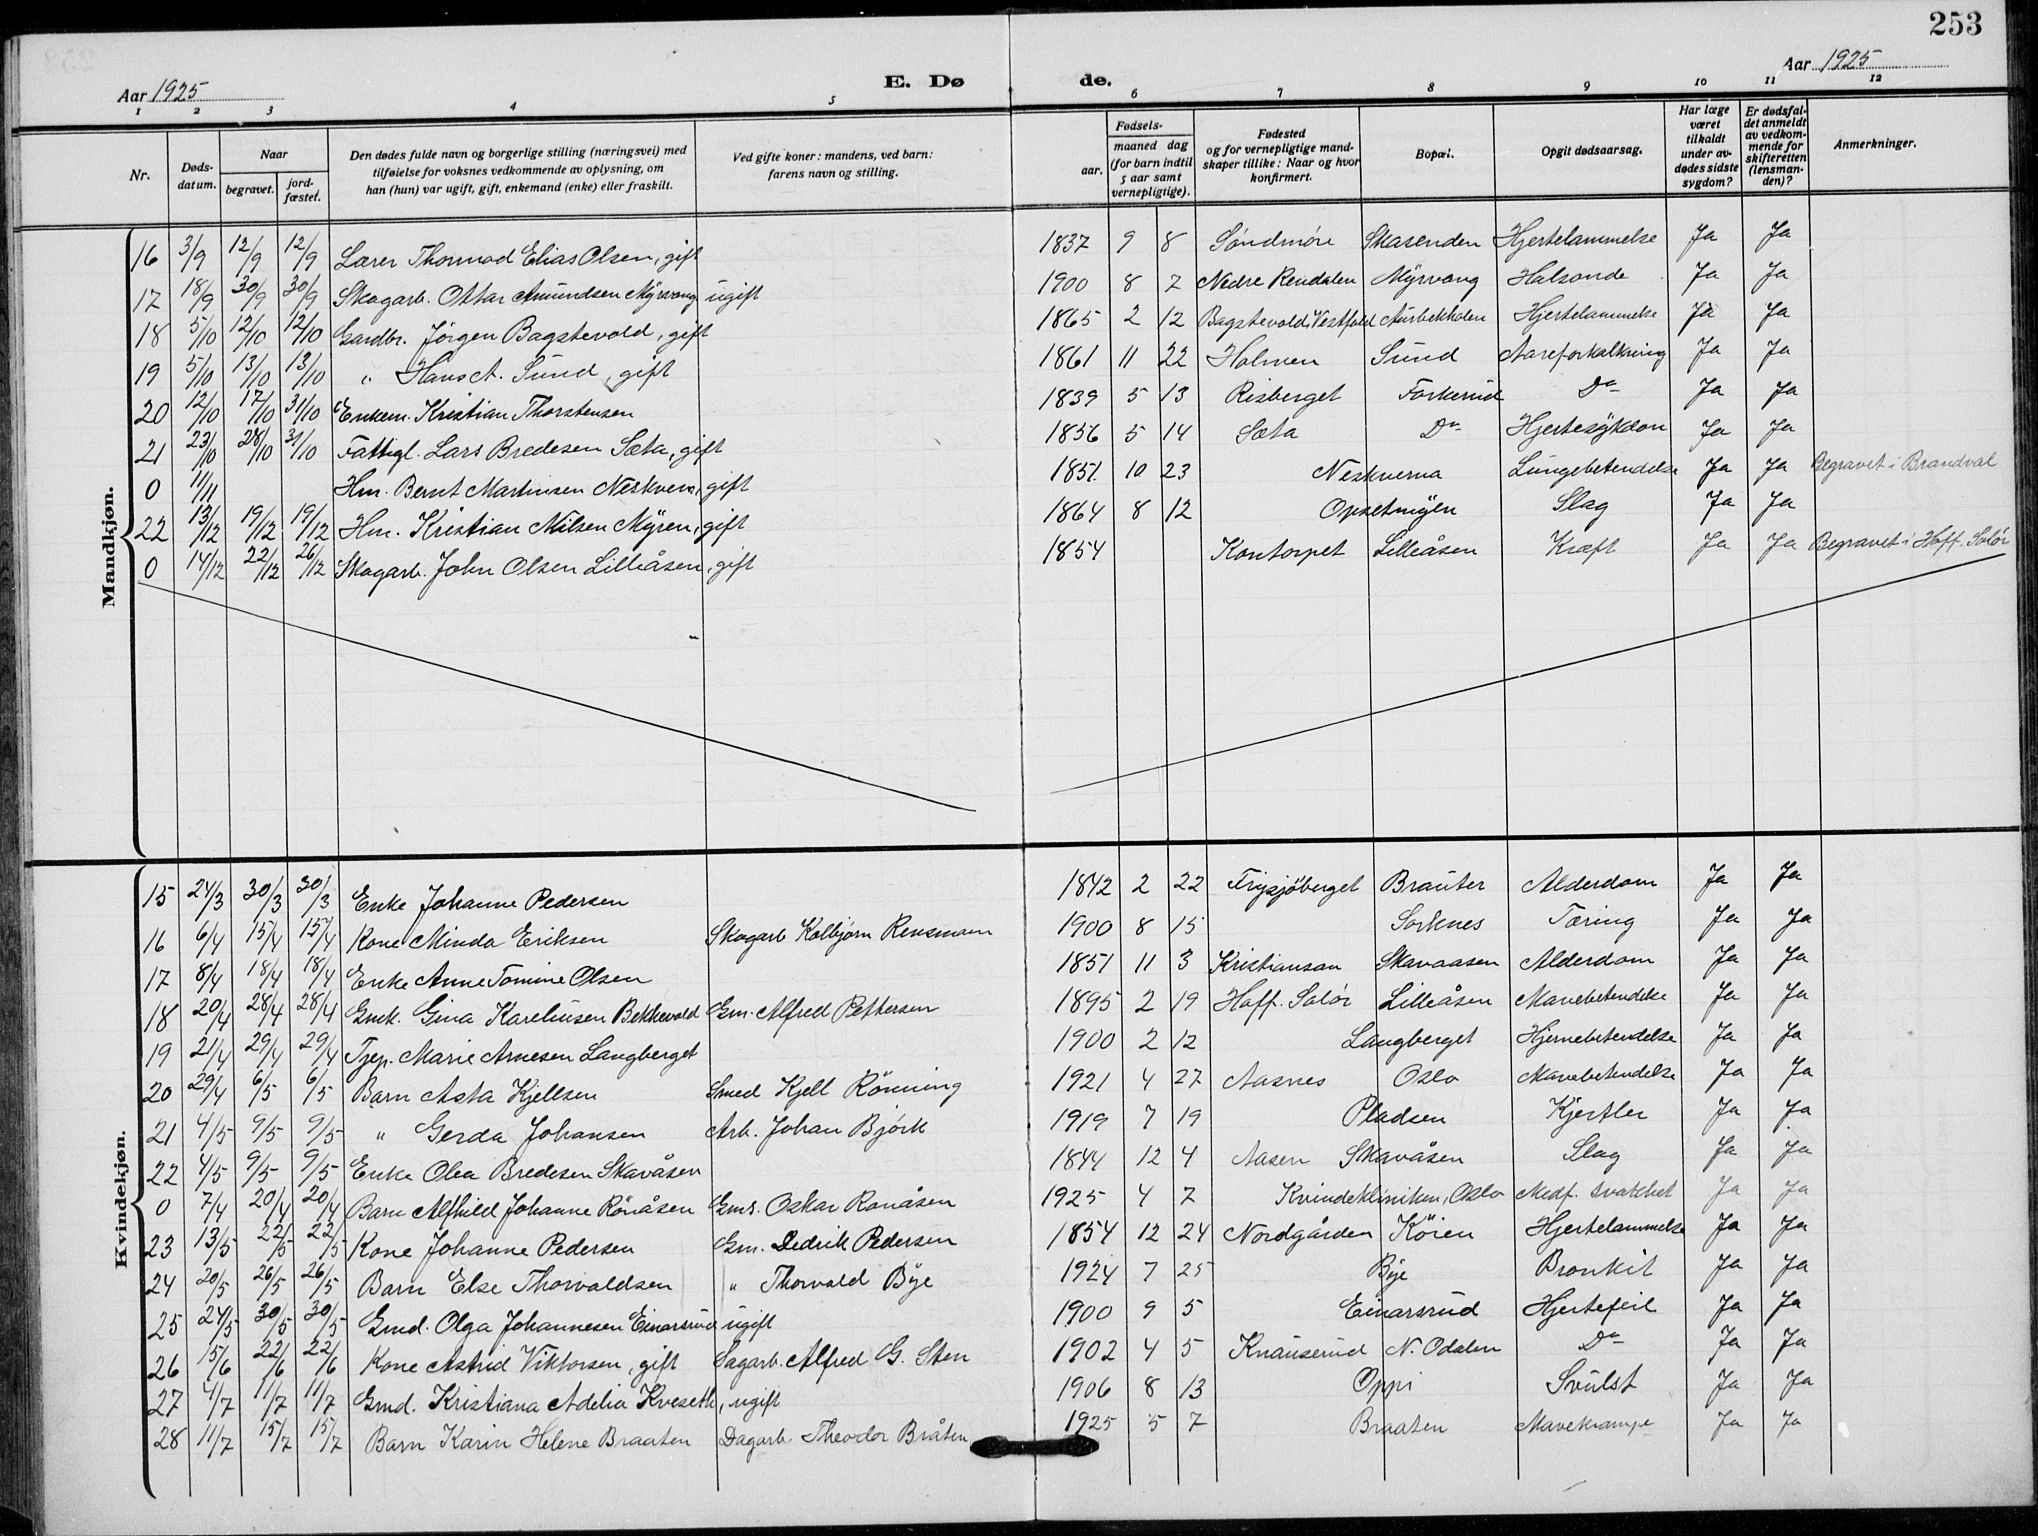 253
Aar 1925 E. Dø de. Aar 1925
1 2 3 4 5 6 7 8 9 10 11 12
Nr. Døds-datum. Naar begravet. jord-fæstet. Den dødes fulde navn og borgerlige stilling (næringsvei) med tilføielse for voksnes vedkommende av oplysning, om han (hun) var ugift, gift, enkemand (enke) eller fraskilt. Ved gifte koner: mandens, ved barn: farens navn og stilling. Fødsels- aar. maaned dag (for barn indtil 5 aar samt vernepligtige). Fødested og for vernepligtige mand-skaper tillike: Naar og hvor konfirmert. Bopæl. Opgit dødsaarsag. Har læge været tilkaldt under av-dødes sidste sygdom? Er dødsfal-det anmeldt av vedkom-mende for skifteretten (lensman-den)? Anmerkninger.
Mandkjøn.
16 3/9 12/9 12/9 Lærer Thormod Elias Olsen, gift 1837 9 8 Söndmöre Skasenden Hjertelammelse Ja Ja
17 18/9 30/9 30/9 Skogarb. Ottar Amundsen Myrvang ugift 1900 8 7 Nedre Rendalen Myrvang Halsonde Ja Ja
18 5/10 12/10 12/10 Gardbr. Jørgen Bagstevold, gift 1865 2 12 Bagstevold, Vestfold Aurbekkolen Hjertelammelse Ja Ja
19 5/10 13/10 13/10 " Hans A. Sund, gift 1861 11 22 Holmen Sund Aareforkalkning Ja Ja
20 12/10 17/10 31/10 Enkem. Kristian Thorstensen 1839 5 13 Risberget Forkerud Do Ja Ja
21 23/10 28/10 31/10 Fattigl. Lars Bredesen Sæta, gift 1856 5 14 Sæta Do Hjertesykdom Ja Ja
0 11/11 Hm. Bernt Martinsen Neskvern, gift 1851 10 23 Neskverna Lungebetendelse Ja Ja Begravet i Brandval
22 13/12 19/12 19/12 Hm. Kristian Nilsen Myren, gift 1864 8 12 Opsetmyen Slag Ja Ja
0 14/12 22/12 26/12 Skogarb. John Olsen Lilleåsen, gift 1854 Kontorpet Lilleåsen Kræft Ja Ja Begravet i Hoff. Solör
Kvindekjøn.
15 24/3 30/3 30/3 Enke Johanne Pedersen 1842 2 22 Frysjöberget Brauter Alderdom Ja Ja
16 6/4 15/4 15/4 Kone Minda Eriksen Skogarb Kolbjørn Rensmoen 1900 8 15 Sorknes Tæring Ja Ja
17 8/4 18/4 18/4 Enke Anne Tomine Olsen 1851 11 3 Kristiansan Skavaasen Alderdom Ja Ja
18 20/4 28/4 28/4 Gmk. Gina Karelinsen Bekkevold Gm. Alfred Pettersen 1895 2 19 Hoff. Solör Lilleåsen Mavebetendelse Ja Ja
19 21/4 29/4 29/4 Tjep. Marie Arnesen Langberget 1900 2 12 Langberget Hjernebetendelse Ja Ja
20 29/4 6/5 6/5 Barn Asta Kjellsen Smed Kjell Rönning 1921 4 27 Aasnes Oslo Mavebetendelse Ja Ja
21 4/5 9/5 9/5 " Gerda Johansen Arb. Johan Björk 1919 7 19 Pladsen Kjertler Ja Ja
22 4/5 9/5 9/5 Enke Olea Bredesen Skavåsen 1844 12 4 Aasen Skavåsen Slag Ja Ja
0 7/4 20/4 20/4 Barn Alfhild Johanne Rönåsen Gms. Oskar Ronåsen 1925 4 7 Kvindekliniken, Oslo Medf. svakhet Ja Ja
23 13/5 22/5 22/5 Kone Johanne Pedersen Gm. Dedrik Pedersen 1854 12 24 Nordgården Köien Hjertelammelse Ja Ja
24 20/5 26/5 26/5 Barn Else Thorvaldsen " Thorvald Bye 1924 7 25 Bye Bronkit Ja Ja
25 24/5 30/5 30/5 Gmd. Olga Johannesen Einarsrud ugift 1900 9 5 Einarsrud Hjertefeil Ja Ja
26 15/6 22/6 22/6 Kone Astrid Viktorsen, gift Sagarb. Alfred G. Sten 1902 4 5 Knauserud N. Odalen Do Ja Ja
27 4/7 11/7 11/7 Gmd. Kristiana Adelia Kveseth, ugift 1906 8 13 Oppi Svulst Ja Ja
28 11/7 15/7 15/7 Barn Karin Helene Braaten Dagarb. Theodor Bråten 1925 5 7 Braaten Mavekrampe Ja Ja